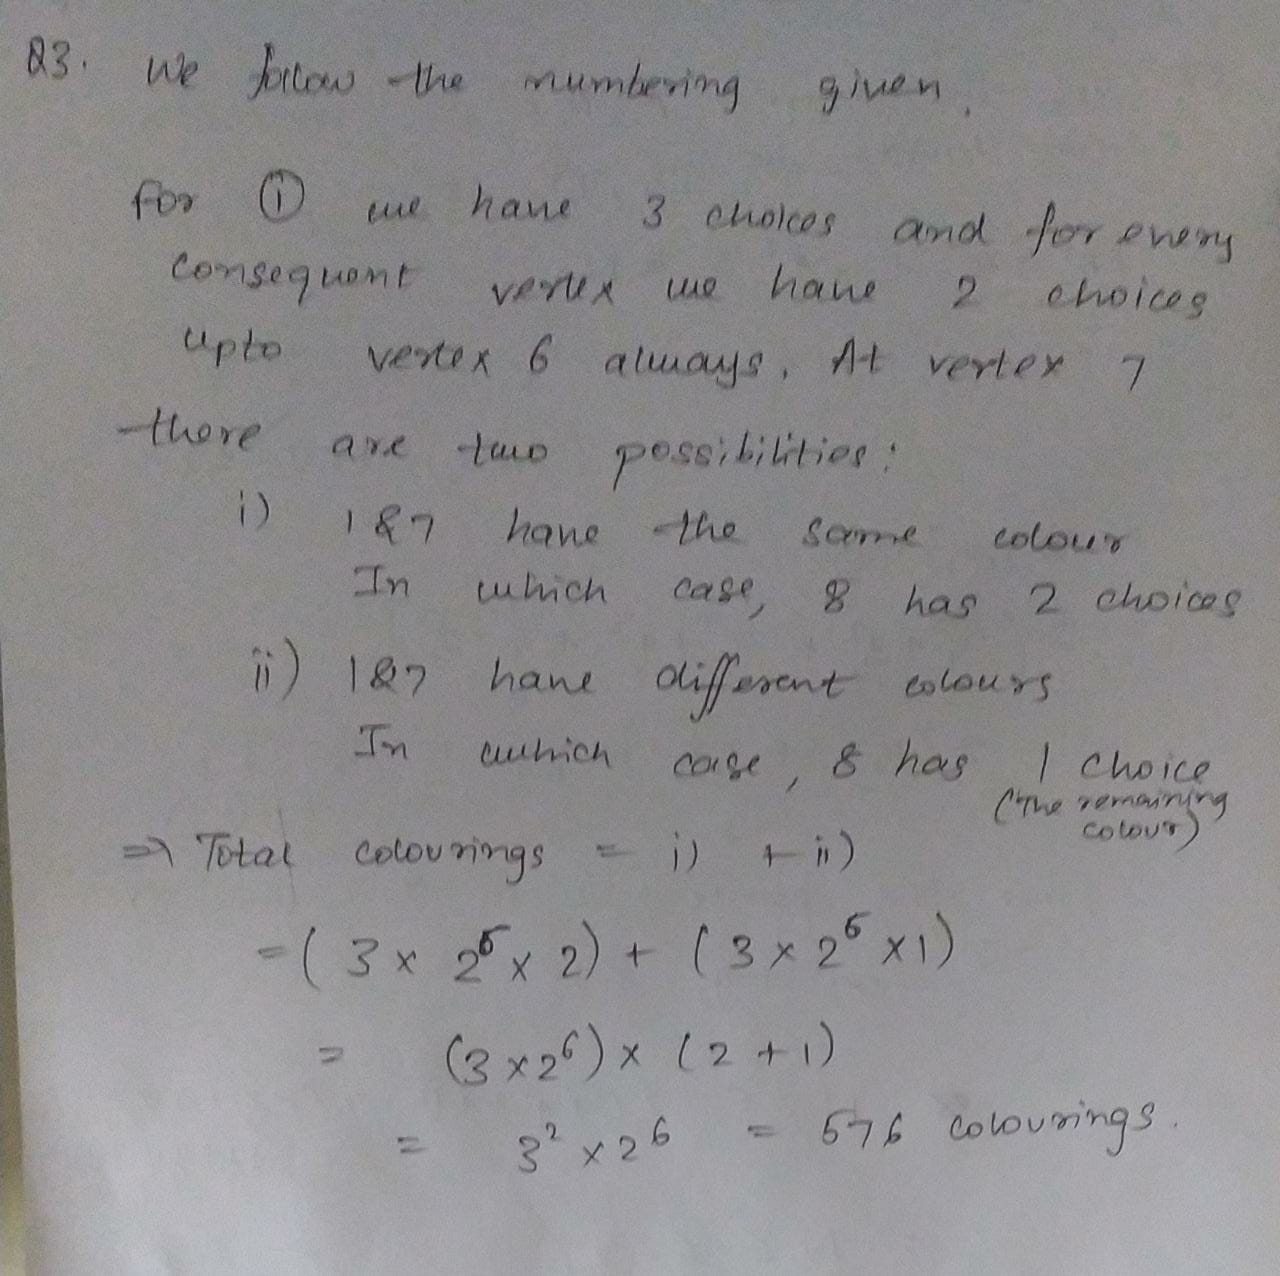 Q3. We follow the numbering given.
For ① we have 3 choices and for every
consequent vertex we have 2 choices
upto vertex 6 always. At vertex 7
there are two possibilities:
i) 1&7 have the same colour
In which case, 8 has 2 choices
ii) 1&7 have different colours
In which case, 8 has 1 choice
(The remaining
colour)
⇒ Total colourings = i) + ii)
= (3 × 2⁶ × 2) + (3 × 2⁶ × 1)
= (3 × 2⁶) × (2 + 1)
= 3² × 2⁶ = 576 colourings.